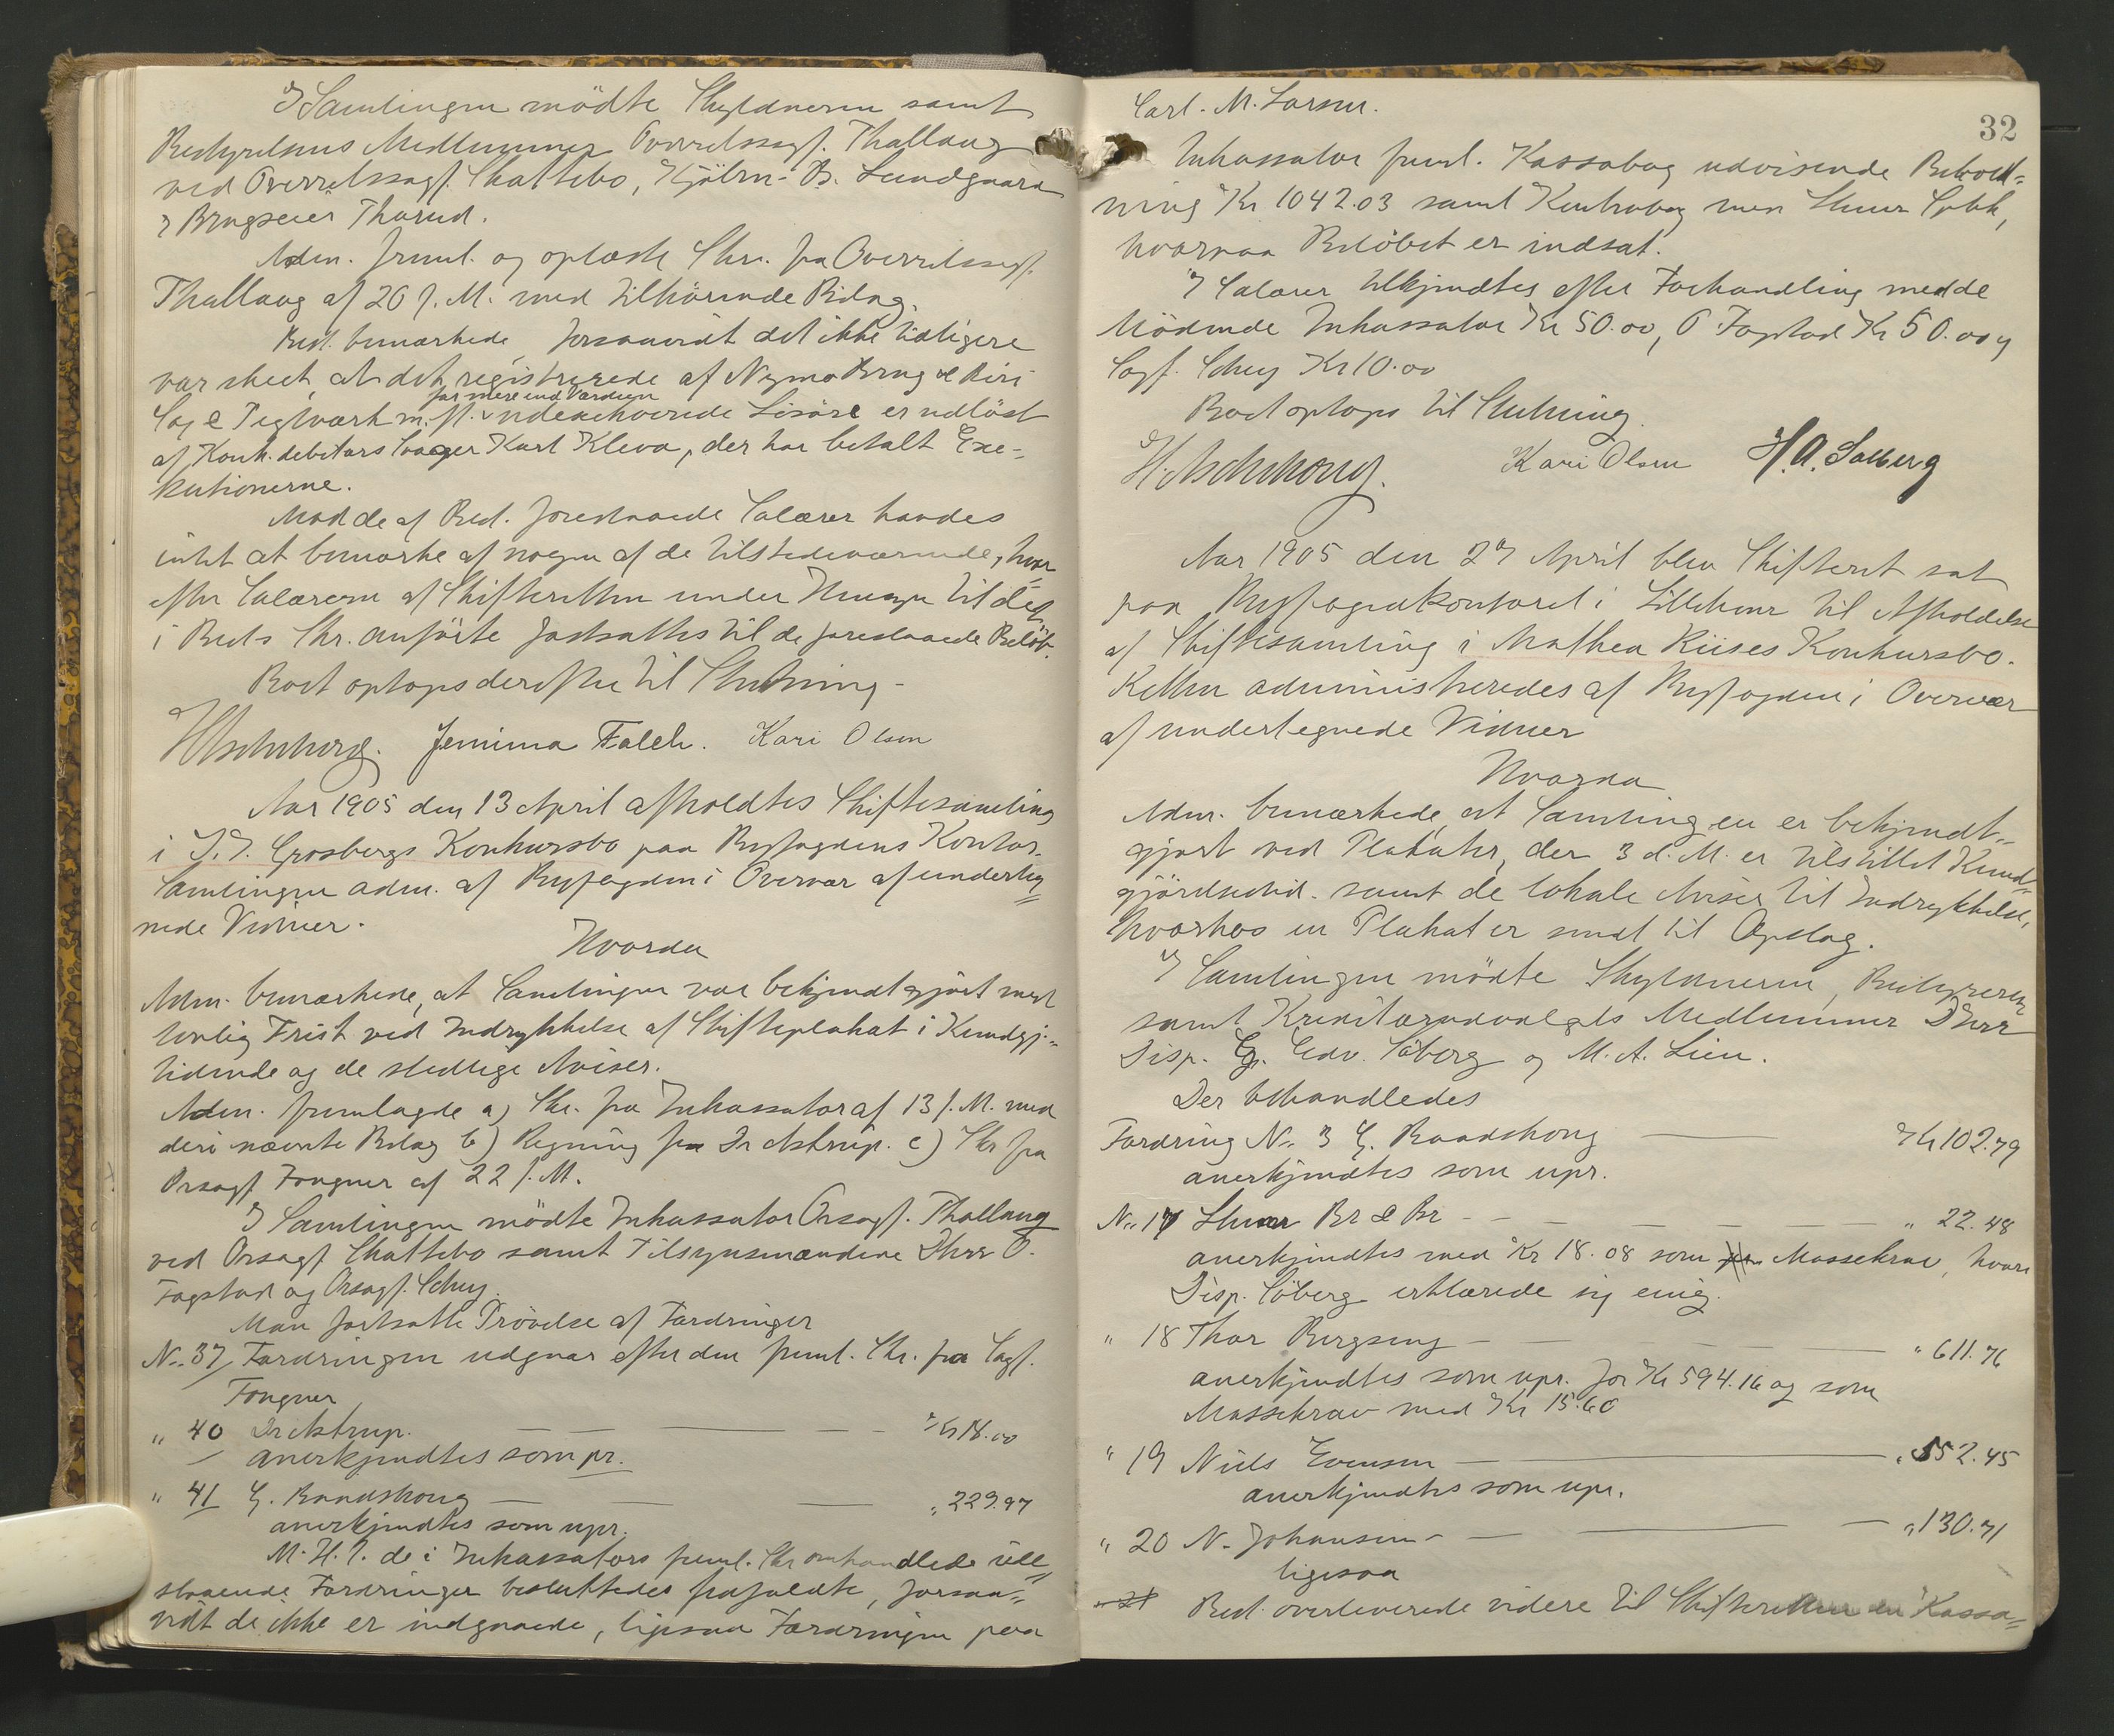 I Samlingen mødte Skyldneren samt
Bestyrelsens Medlemmer Overretssagf. Thallaug
ved Overretssagf. Skattebo, Kjøbm. B. Lundgaard
& Brugseier Thorud.
Adm. freml. og oplæste Skr. fra Overretssagf.
Thallaug af 20 f. M. med tilhørende Bilag.
Best. bemærkede, forsaavidt det ikke tidligere
var skeet, at det registrerede af Nymo Brug & Biri
Sag & Teglværk m. fl. for mere end Værdien udexekverede Løsøre er udløst
af Konk.debitors Svoger Karl Kleva, der har betalt Exe-
kutionerne.
Mod de af Best. foreslaaede Salærer havdes
intet at bemærke af nogen af de tilstedeværende, hvor
efter Salærerne af Skifteretten under Hensyn til det
i Best.s Skr. anførte fastsattes til de foreslaaede Beløb.
Boet optoges derefter til Slutning.
Jemima Falch. Kari Olsen
Aar 1905 den 13 April afholdtes Skiftesamling
i J. J. Grosbergs Konkursbo paa Byfogdens Kontor.
Samlingen adm. af Byfogden i Overvær af underteg
nede Vidner.
Hvorda
Adm. bemærkede, at Samlingen var bekjendtgjort med
lovlig Frist ved Indrykkelse af Skifteplakat i Kundgj.-
tidende og de stedlige Aviser.
Adm. fremlagde a) Skr. fra Inkassator af 13 f. M. med
deri nævnte Bilag b) Regning fra Dr Astrup. c) Skr fra
Orsagf Fougner af 22 f. M.
I Samlingen mødte Inkassator Orsagf. Thallaug
ved Orsagf Skattebo samt Tilsynsmændene Dhrr O.
Fagstad og Orsagf. Schey.
Man fortsatte Prøvelse af Fordringer
No. 37, Fordringen udgaar efter den freml. Skr. fra Sagf.
Fougner
" 40 Dr Astrup. — — Kr 18.00
anerkjendtes som pr.
" 41 G. Raadshoug — — " 229.97
anerkjendtes som upr.
M. H. t. de i Inkassators freml. Skr omhandlede ude
staaende Fordringer besluttedes frafaldte, forsaa-
vidt de ikke er indgaaede, ligesaa Fordringen paa
Carl. M. Larsen.
32
Inkassator freml. Kassabog udvisende Behold-
ning Kr 1042.03 samt Kontrabog med Spbk,
hvorpaa Beløbet er indsat.
I Salærer tilkjendtes efter Forhandling med de
Mødende Inkassator Kr 50.00, O Fagstad Kr 50.00 og
Sagf. Schey Kr 10.00
Boet optoges til Slutning.
Kari Olsen H. A. Solberg
Aar 1905 den 27 April blev Skifteret sat
paa Byfogedkontoret i Lillehmr til Afholdelse
af Skiftesamling i Mathea Kiises Konkursbo.
Retten administreredes af Byfogden i Overvær
af undertegnede Vidner
Hvorda
Adm. bemærkede, at Samlingen er bekjendt-
gjort ved Plakater, der 3 d. M. er tilstillet Kund-
gjørelsestid. samt de lokale Aviser til Indrykkelse,
hvorhos en Plakat er sendt til Opslag.
I Samlingen mødte Skyldneren, Bestyreren
samt Kreditorudvalgets Medlemmer Dhrr
Disp. Edv. Søberg og M. A. Lien.
Der behandledes
Fordring No. 3 G. Raadshoug — Kr 102.79
anerkjendtes som upr.
No. 17 Br & Br — — — " 22.48
anerkjendtes med Kr 18.08 som Massekrav, hvori
Disp. Søberg erklærede sig enig.
" 18 Thor Bergseng — — — " 611.76
anerkjendtes som upr. for Kr 594.16 og som
Massekrav med Kr 15.60
" 19 Niels Evensen — — " 552.45
anerkjendtes som upr.
" 20 N. Johansen — — — " 130.71
ligesaa
" 21 Best. overleverede videre til Skifteretten en Kassa-